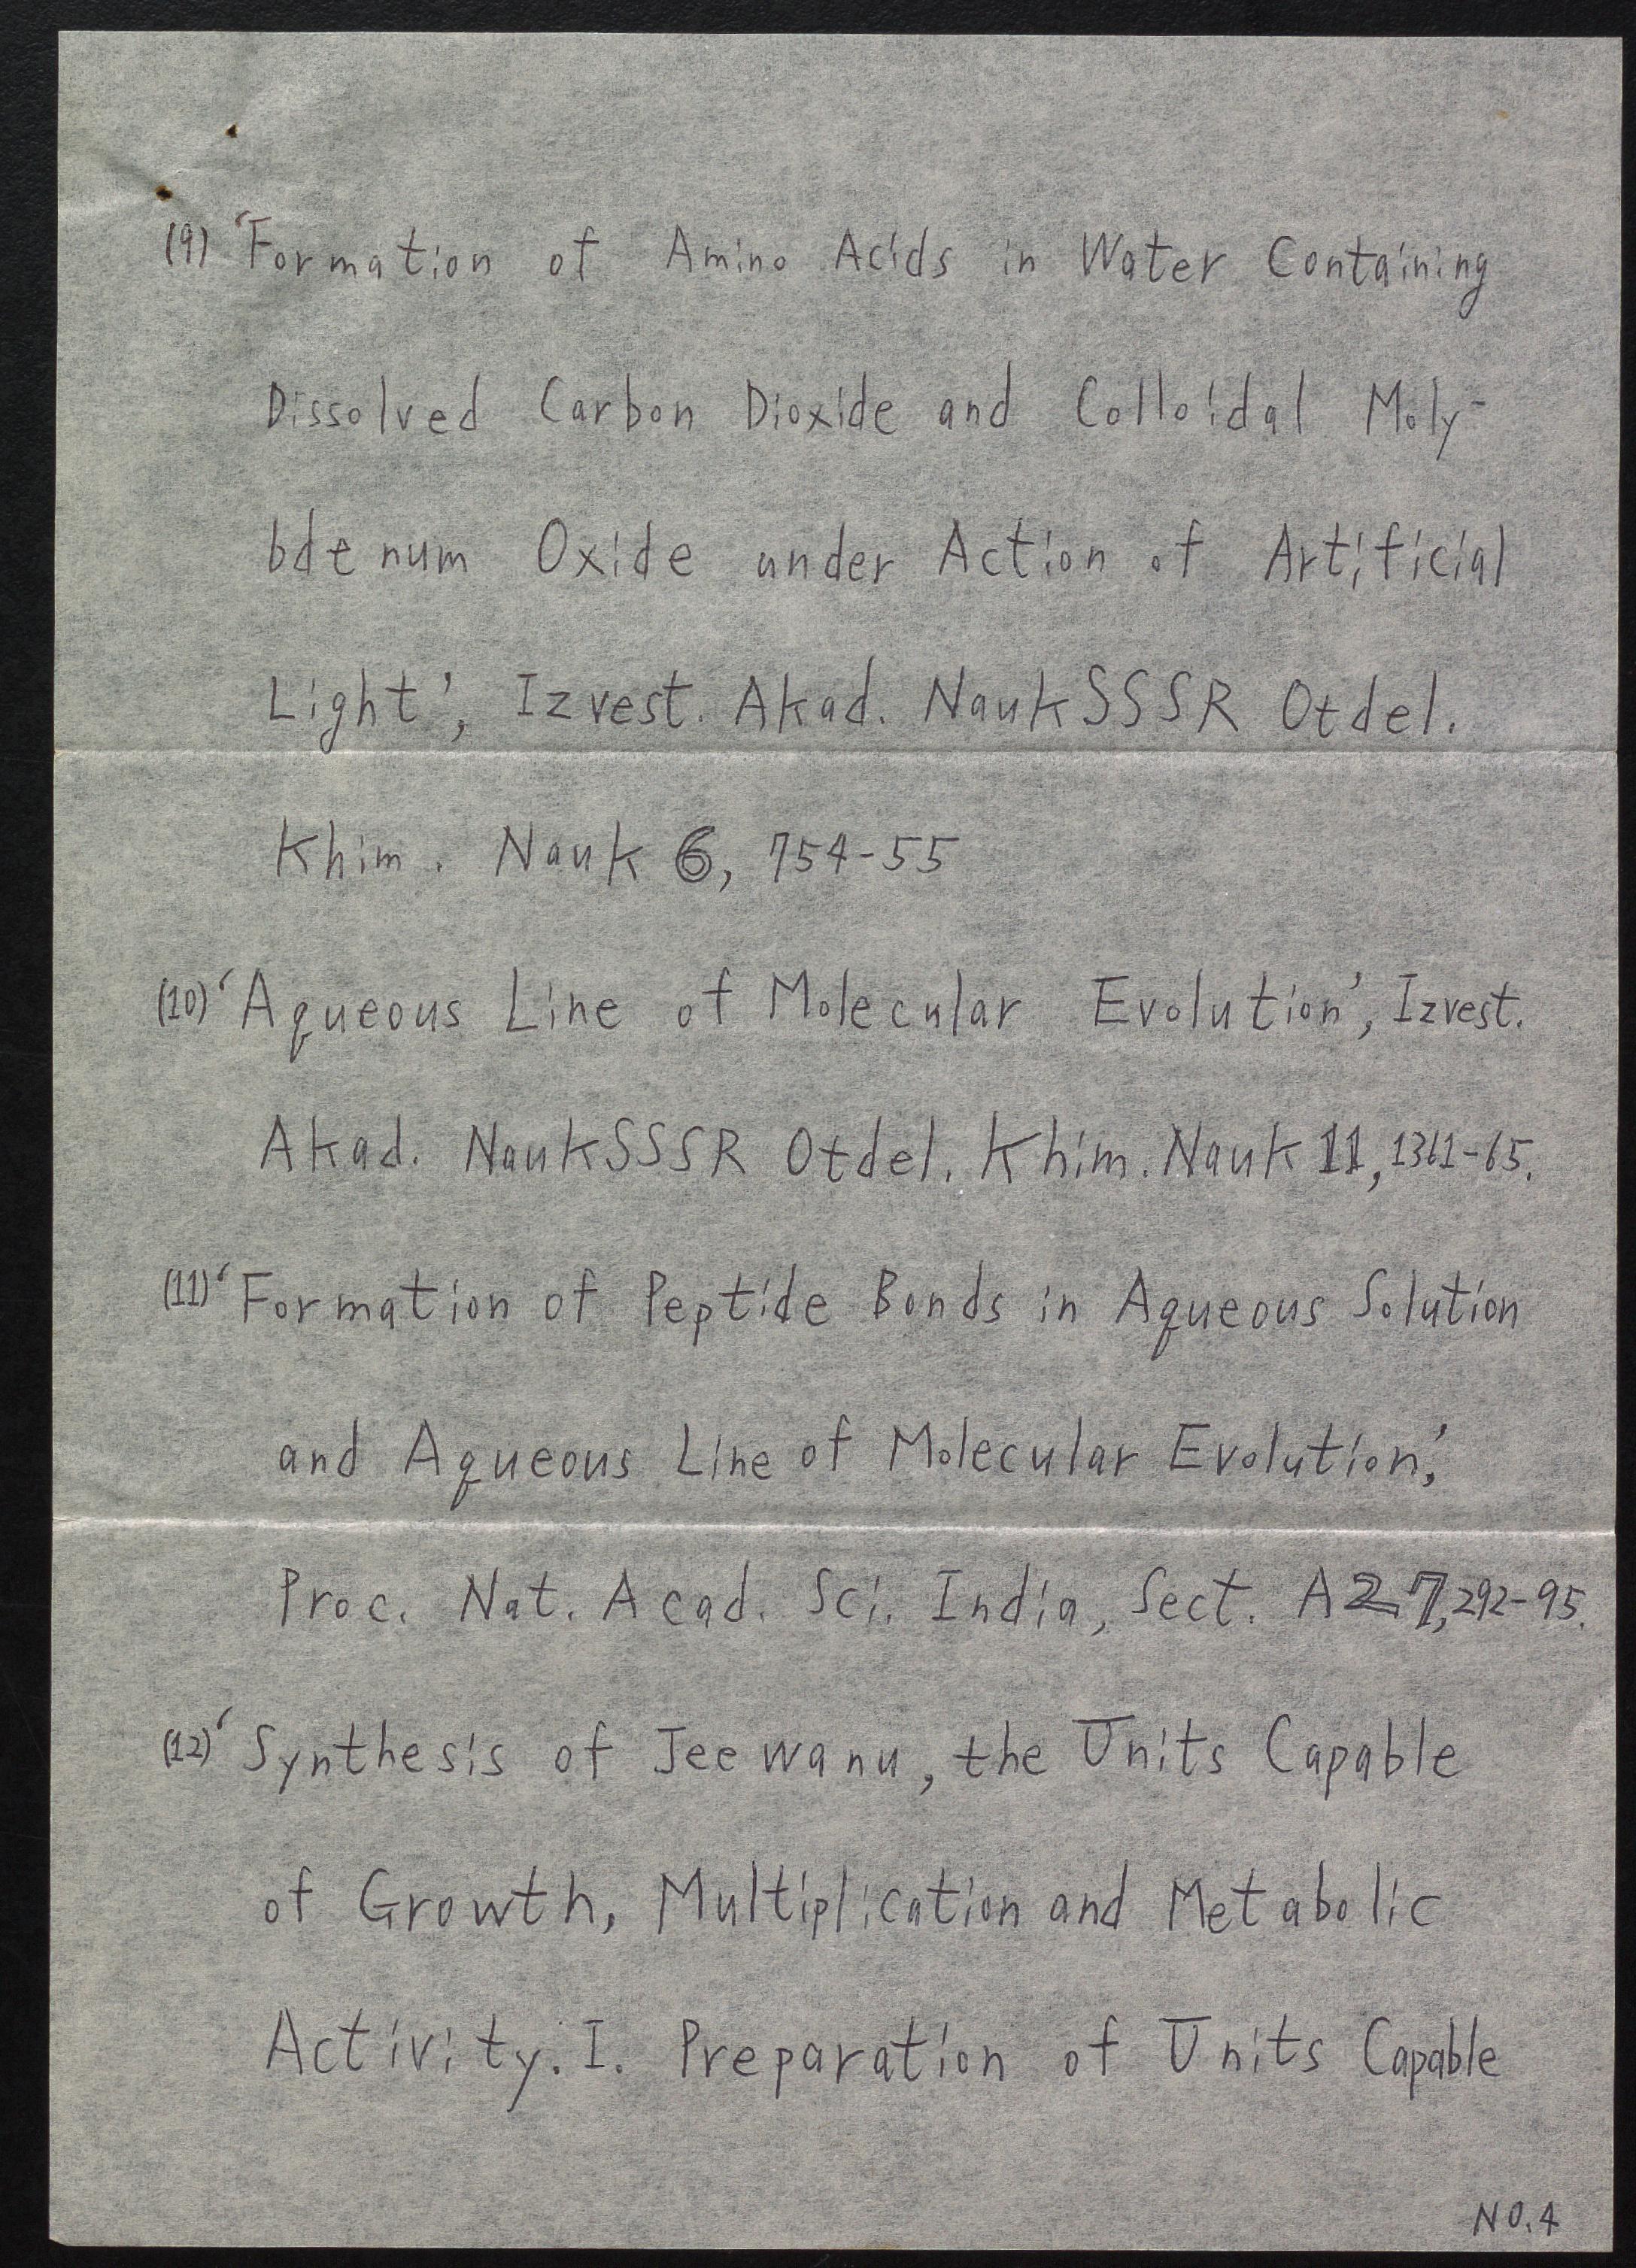 (9) 'Formation of Amino Acids in Water Containing
Dissolved Carbon Dioxide and Colloidal Moly-
bdenum Oxide under Action of Artificial
Light', Izvest. Akad. Nauk SSSR Otdel.
Khim. Nauk 6, 754-55
(10) 'Aqueous Line of Molecular Evolution', Izvest.
Akad. Nauk SSSR Otdel. Khim. Nauk 11, 1361-65.
(11) 'Formation of Peptide Bonds in Aqueous Solution
and Aqueous Line of Molecular Evolution',
Proc. Nat. Acad. Sci. India, Sect. A27, 292-95.
(12) 'Synthesis of Jeewanu, the Units Capable
of Growth, Multiplication and Metabolic
Activity. I. Preparation of Units Capable
NO.4